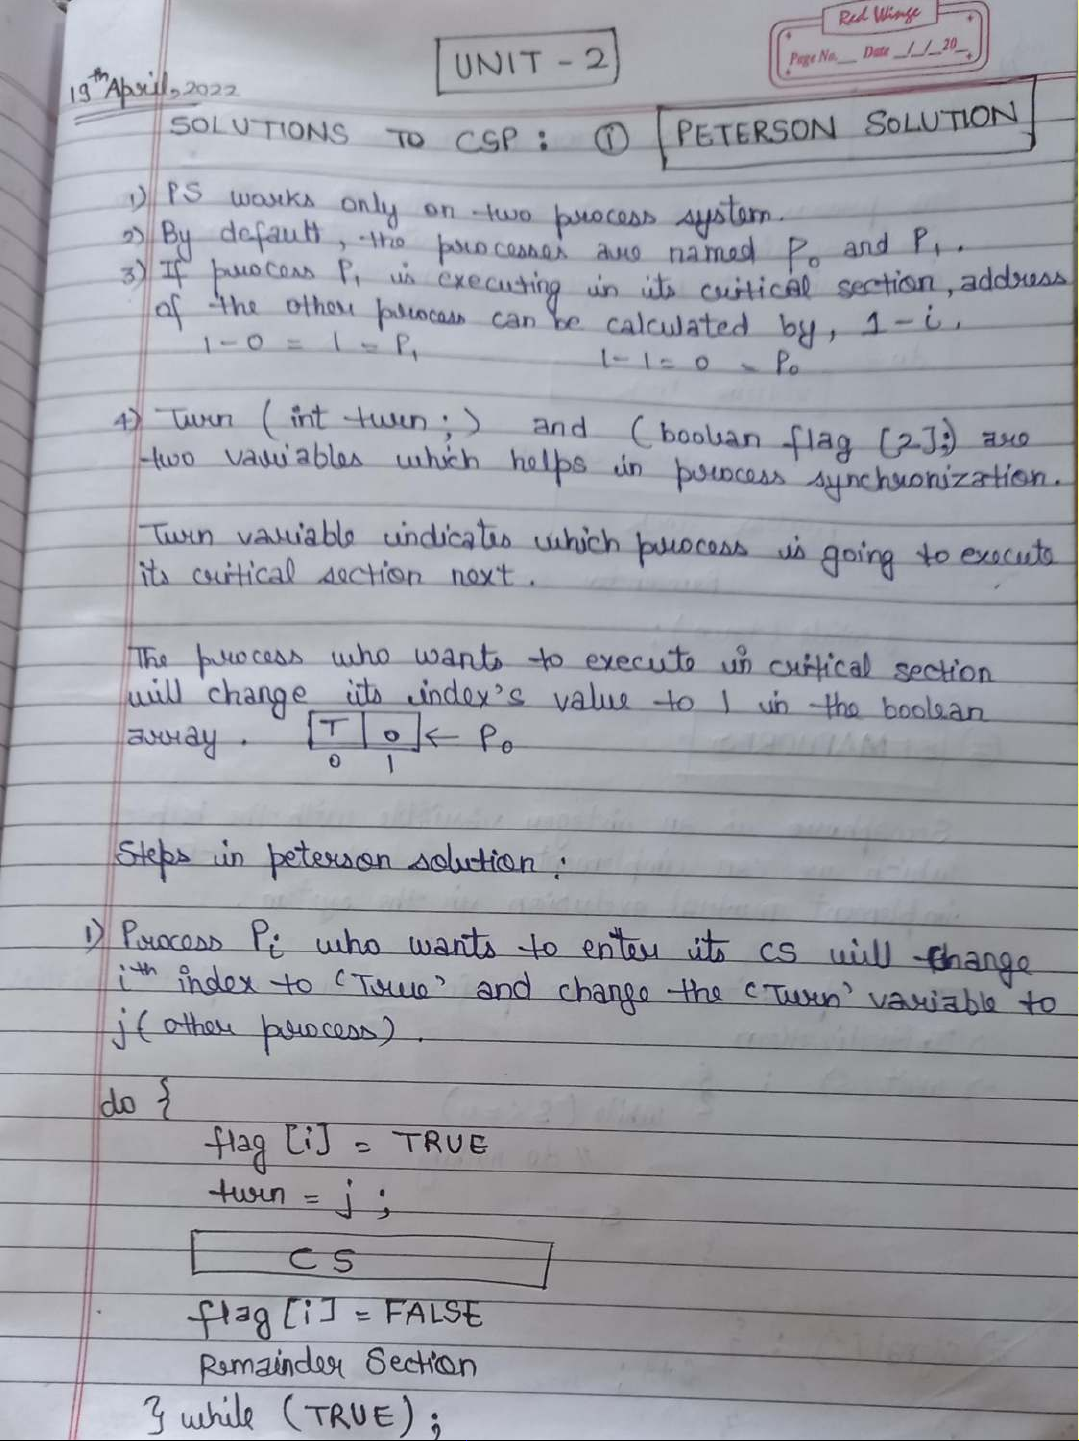 Red Winge
Page No.__ Date _/_/_20_
UNIT - 2
19th April, 2022
SOLUTIONS TO CSP : ① PETERSON SOLUTION
1) PS works only on two process system.
2) By default, the processes are named P0 and P1.
3) If process P1 is executing in its critical section, address
of the other process can be calculated by, 1-i.
1-0 = 1 - P1 1-1 = 0 - P0
4) Turn (int turn;) and (boolean flag [2];) are
two variables which helps in process synchronization.
Turn variable indicates which process is going to execute
its critical section next.
The process who wants to execute in critical section
will change its index's value to 1 in the boolean
array. T 0 ← P0
0 1
Steps in peterson solution :
1) Process Pi who wants to enter its CS will change
ith index to 'True' and change the 'Turn' variable to
j (other process).
do {
flag [i] = TRUE
turn = j ;
CS
flag [i] = FALSE
Remainder Section
} while (TRUE) ;